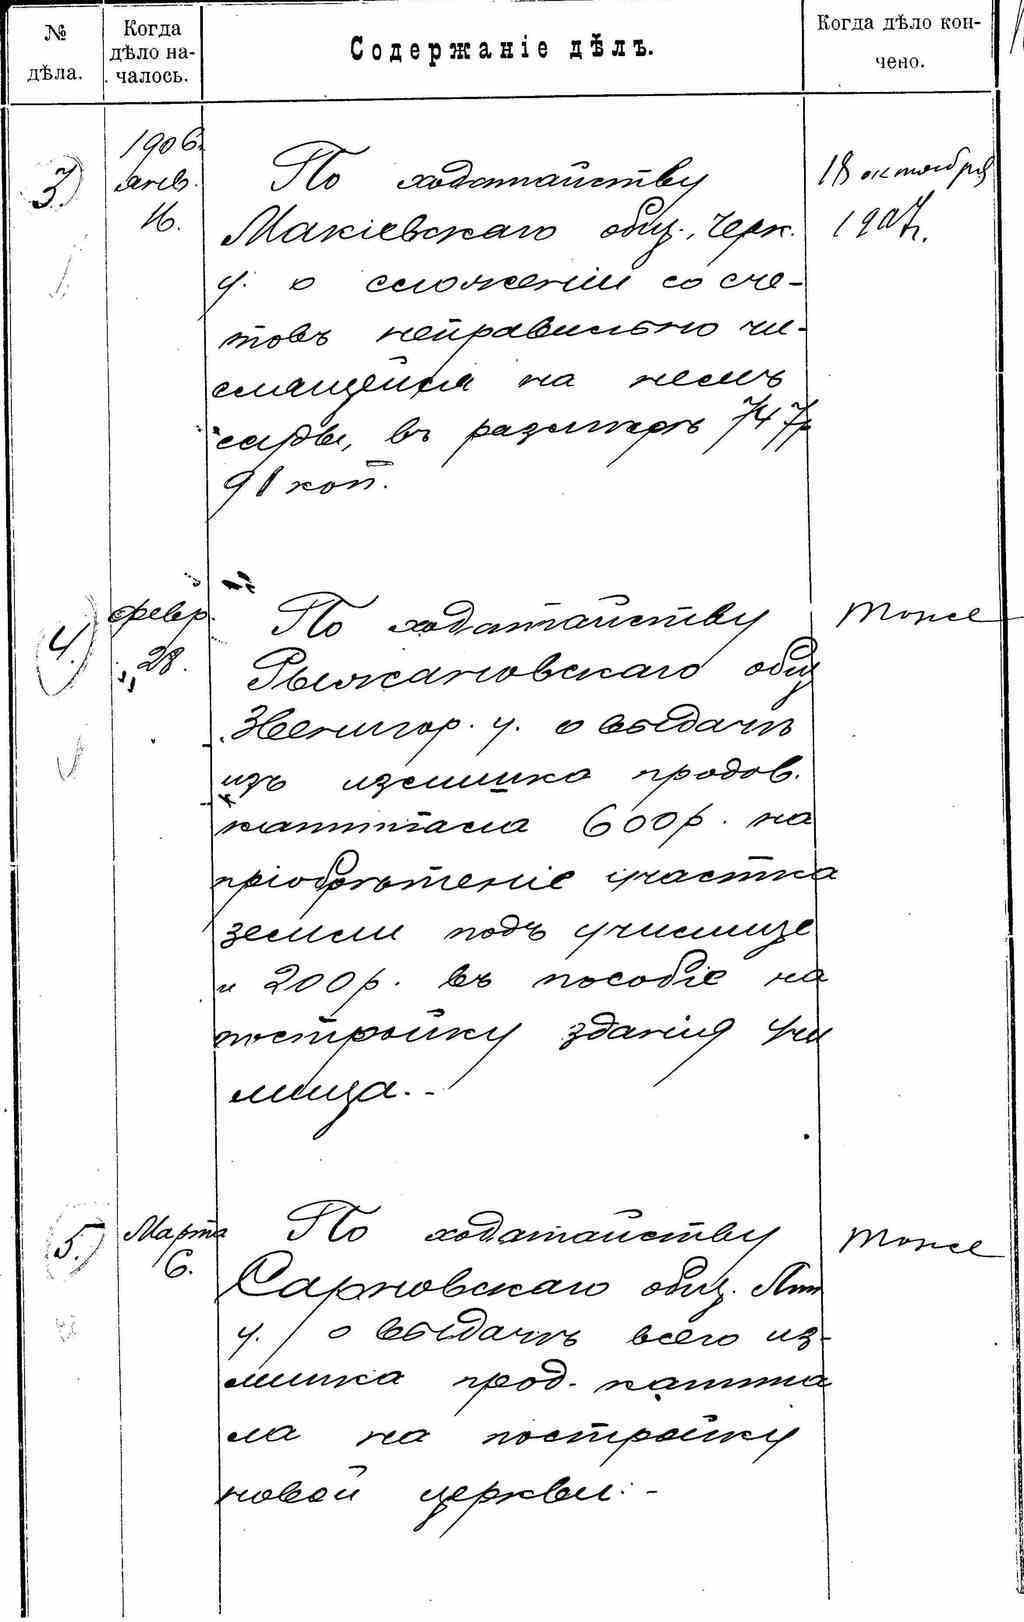 № дѣла.
Когда дѣло на-
чалось.
Содержаніе дѣлъ.
Когда дѣло кон-
чено.
3.
1906
янв.
16.
По ходатайству
Макіевскаго общ., Черк.
у. о сложеніи со сче-
товъ неправильно чи-
слящейся на немъ
ссуды, въ размѣрѣ 747р
91 коп.
18 октября
1907г.
4.
февр.
28.
По ходатайству
Рыжановскаго общ
Звенигор. у. о выдачѣ
изъ излишка продов.
капитала 600р. на
пріобрѣтеніе участка
земли подъ училище
и 200р. въ пособіе на
постройку зданія учи
лища.-
тоже
5.
Марта
6.
По ходатайству
Сарновскаго общ. Лип
у. о выдачѣ всего из-
лишка прод. капита
ла на постройку
новой церкви.-
тоже